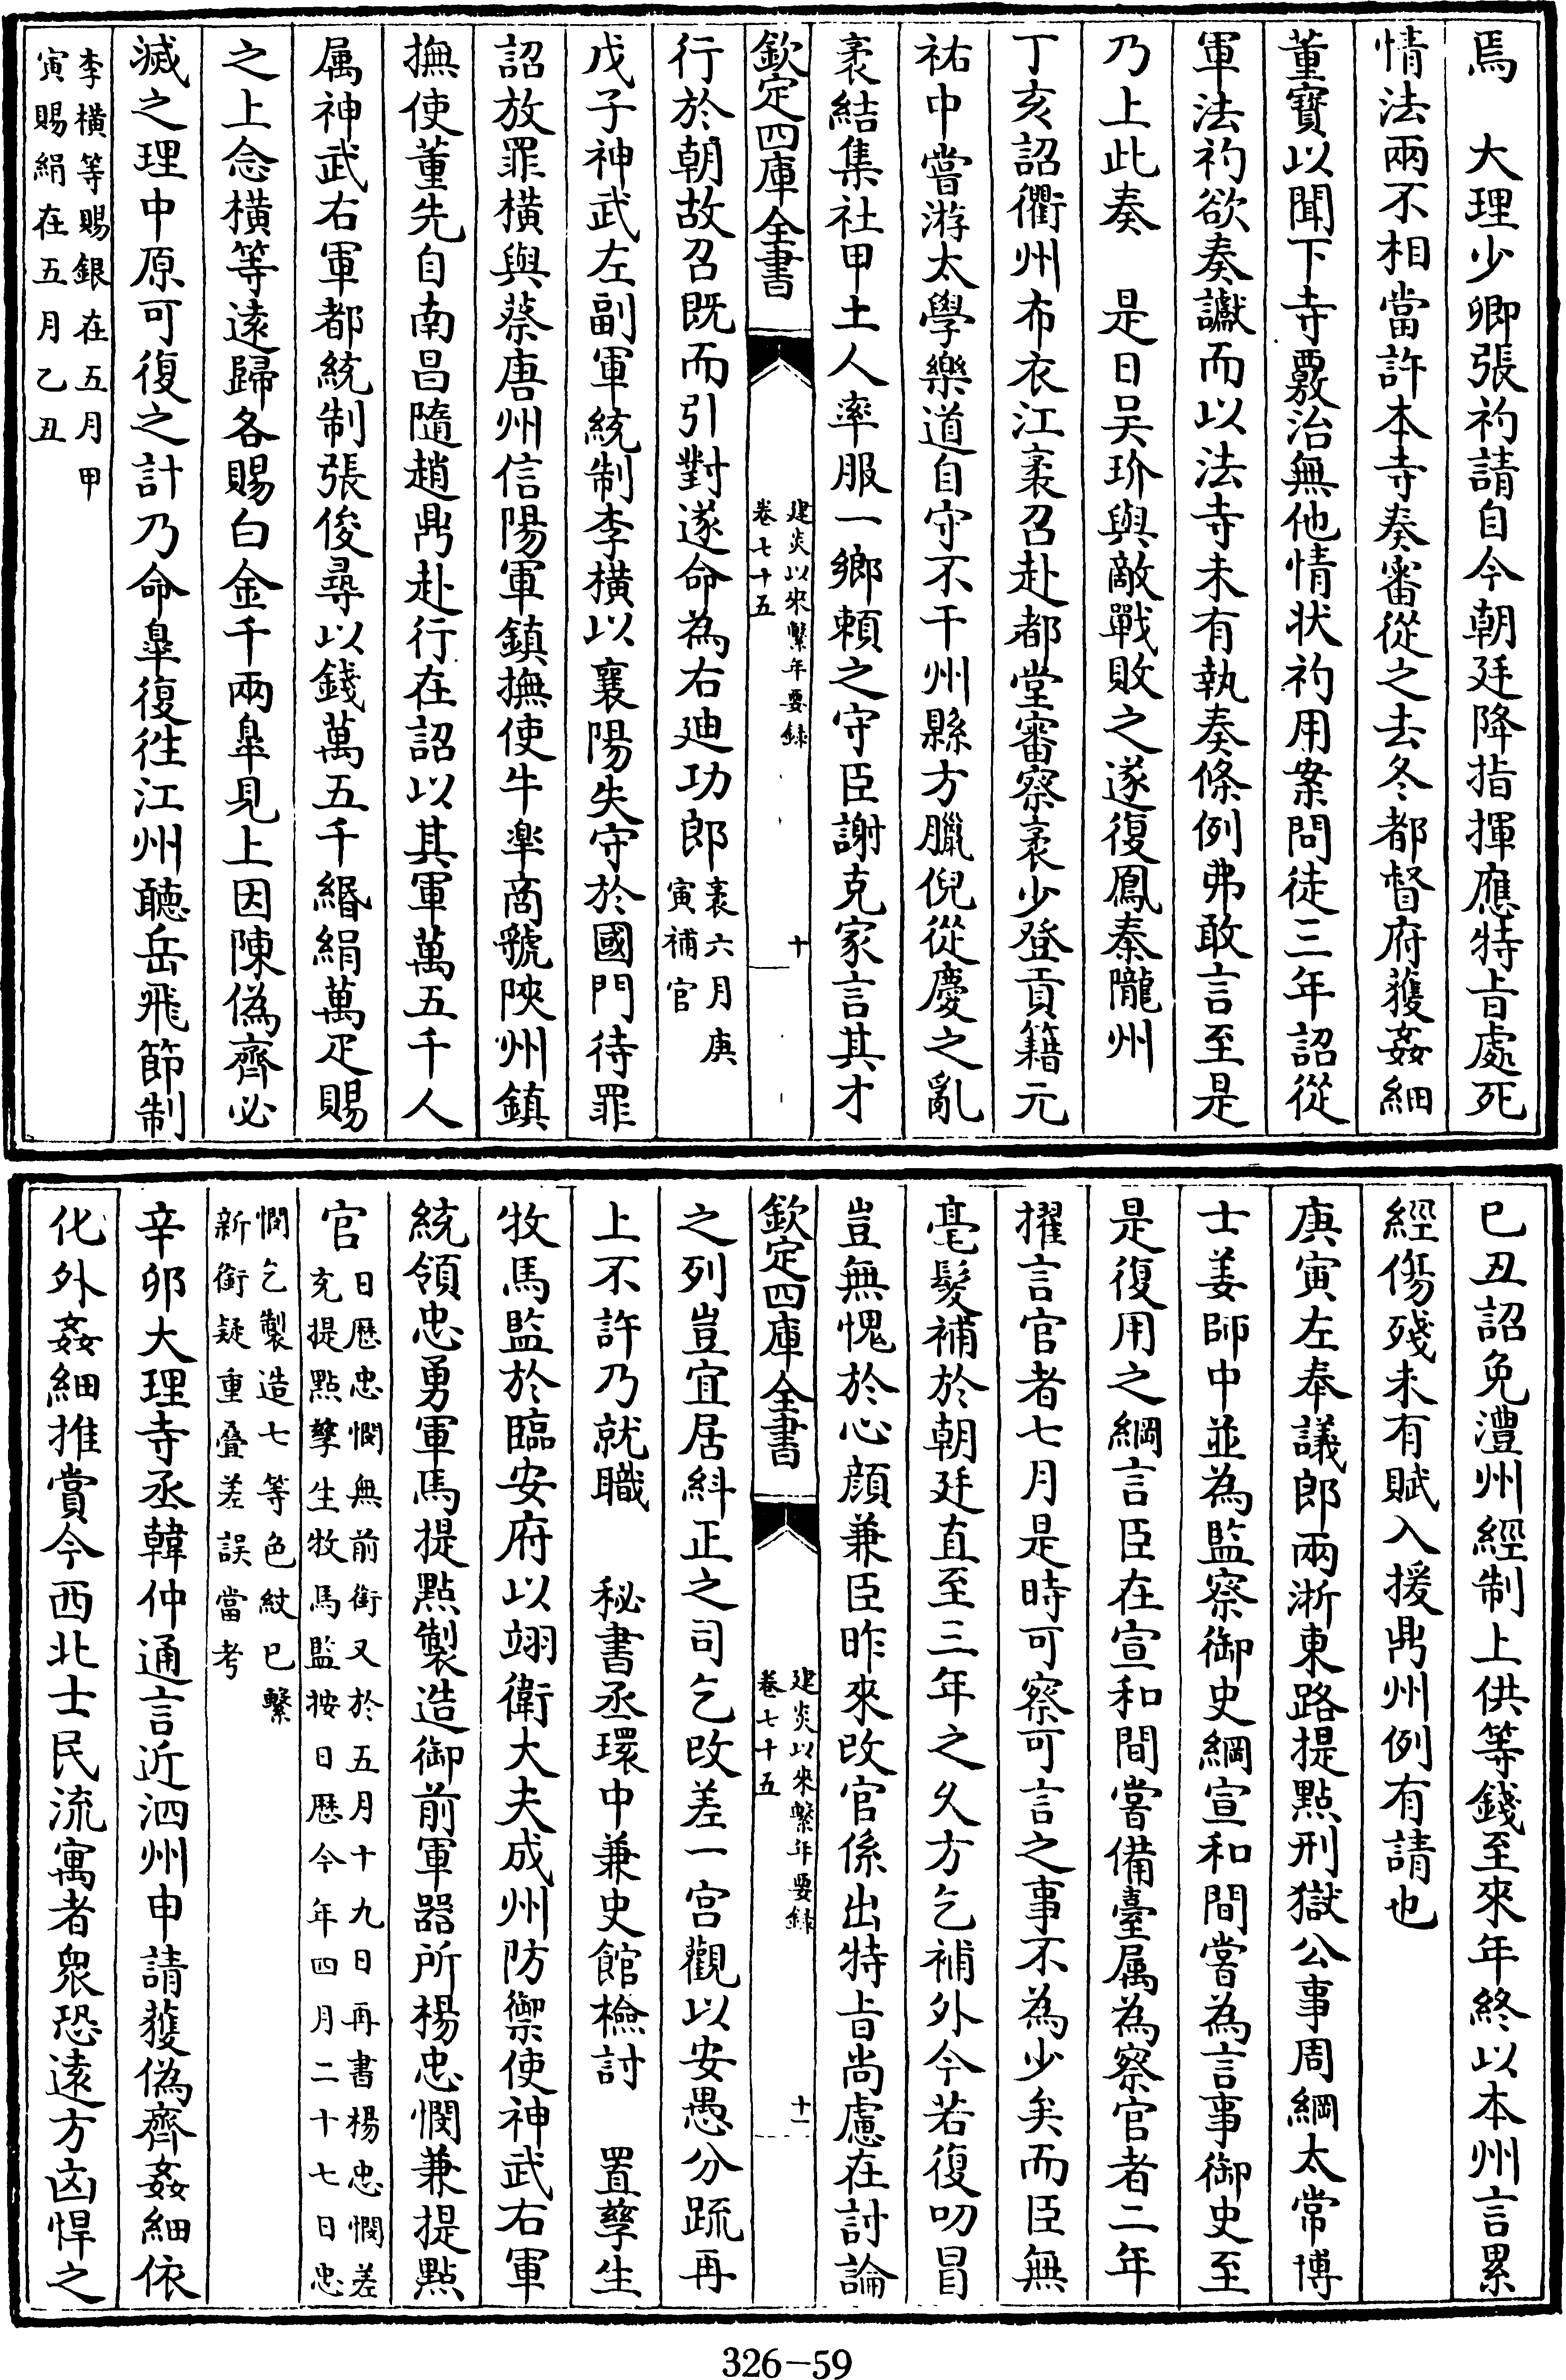 焉　大理少卿張礿請自今朝廷降指揮應特㫖處死
情法兩不相當許本寺奏審從之去冬都督府獲姦細
董寶以聞下寺覈治無他情狀礿用案問徒三年詔從
軍法礿欲奏讞而以法寺未有執奏條例弗敢言至是
乃上此奏　是日吴玠與敵戰敗之遂復鳳秦隴州
丁亥詔衢州布衣江袤召赴都堂審察袤少登貢籍元
祐中嘗游太學樂道自守不干州縣方臘倪從慶之亂
袤結集社甲土人率服一鄉賴之守臣謝克家言其才
欽定四庫全書
建炎以來繫年要録
卷七十五
十
行於朝故召既而引對遂命為右廸功郎袤六月庚
寅補官
戊子神武左副軍統制李横以襄陽失守於國門待罪
詔放罪横與蔡唐州信陽軍鎮撫使牛皐商虢陜州鎮
撫使董先自南昌隨趙鼎赴行在詔以其軍萬五千人
属神武右軍都統制張俊尋以錢萬五千緡絹萬疋賜
之上念横等逺歸各賜白金千兩皐見上因陳偽齊必
滅之理中原可復之計乃命皐復徃江州聴岳飛節制
李横等賜銀在五月甲
寅賜絹在五月乙丑
已丑詔免澧州經制上供等錢至來年終以本州言累
經傷殘未有賦入援鼎州例有請也
庚寅左奉議郎兩浙東路提點刑獄公事周綱太常博
士姜師中並為監察御史綱宣和間嘗為言事御史至
是復用之綱言臣在宣和間嘗備臺属為察官者二年
擢言官者七月是時可察可言之事不為少矣而臣無
毫髮補於朝廷直至三年之久方乞補外今若復叨冒
豈無愧於心顔兼臣昨來改官係出特㫖尚慮在討論
欽定四庫全書
建炎以來繫年要録
卷七十五
十一
之列豈宜居糾正之司乞改差一宫觀以安愚分疏再
上不許乃就職　秘書丞環中兼史館檢討　置孳生
牧馬監於臨安府以翊衛大夫成州防禦使神武右軍
統領忠勇軍馬提點製造御前軍器所楊忠憫兼提點
官日厯忠憫無前銜又於五月十九日再書楊忠憫差
充提點孳生牧馬監按日厯今年四月二十七日忠
憫乞製造七等色紋已繫
新銜疑重疊差誤當考
辛卯大理寺丞韓仲通言近泗州申請獲偽齊姦細依
化外姦細推賞今西北士民流寓者衆恐逺方凶悍之
326—59